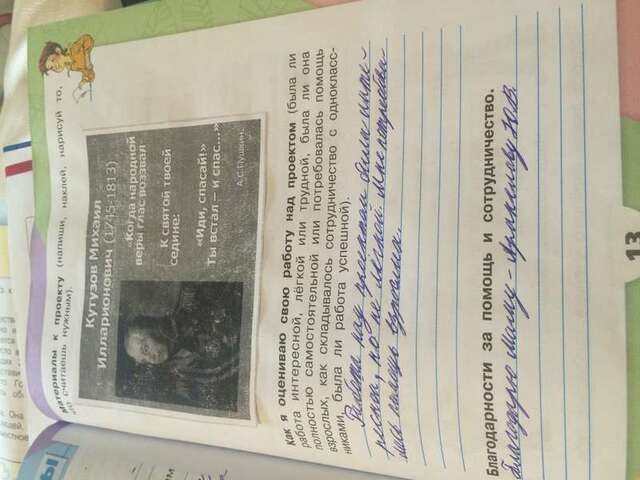 Материалы к проекту (напиши, наклей, нарисуй то,
что считаешь нужным).
Кутузов Михаил
Илларионович (1745-1813)
«Когда народной
веры глас воззвал
К святой твоей
седине:
«Иди, спасай!»
Ты встал – и спас...»
А.С.Пушкин
Как я оцениваю свою работу над проектом (была ли
работа интересной, лёгкой или трудной, была ли она
полностью самостоятельной или потребовалась помощь
взрослых, как складывалось сотрудничество с одноклас-
сниками, была ли работа успешной).
Работа над проектом была инте-
ресной, но не лёгкой. Мне потребова-
лась помощь взрослых.
Благодарности за помощь и сотрудничество.
Благодарю Маму - Аракелову Ю.В.
13